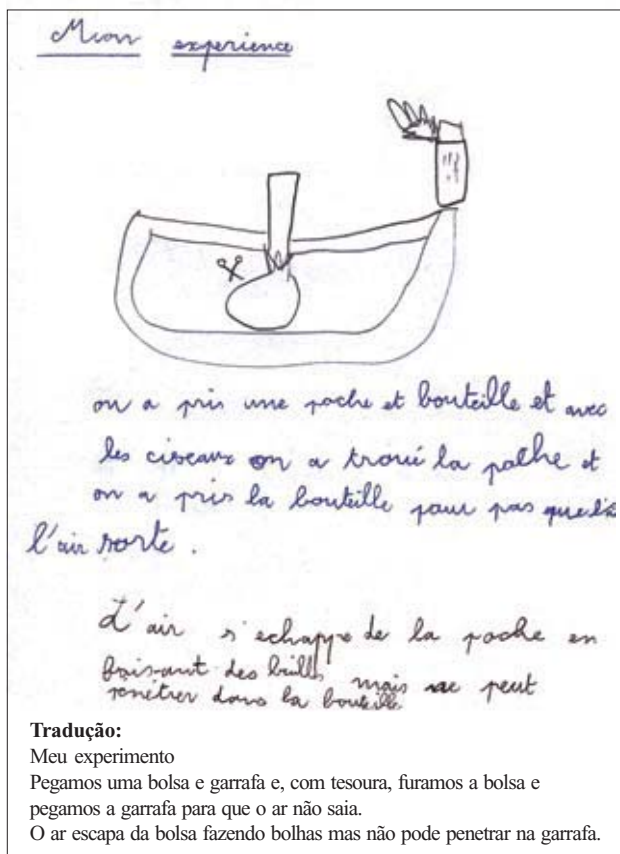 Mon experience
on a pris une poche et bouteille et avec
les ciseaux on a troué la poche et
on a pris la bouteille pour pas que
l'air sorte.
L'air s'echappe de la poche en
faisant des bulles mais ne peut
pénétrer dans la bouteille
Tradução:
Meu experimento
Pegamos uma bolsa e garrafa e, com tesoura, furamos a bolsa e
pegamos a garrafa para que o ar não saia.
O ar escapa da bolsa fazendo bolhas mas não pode penetrar na garrafa.